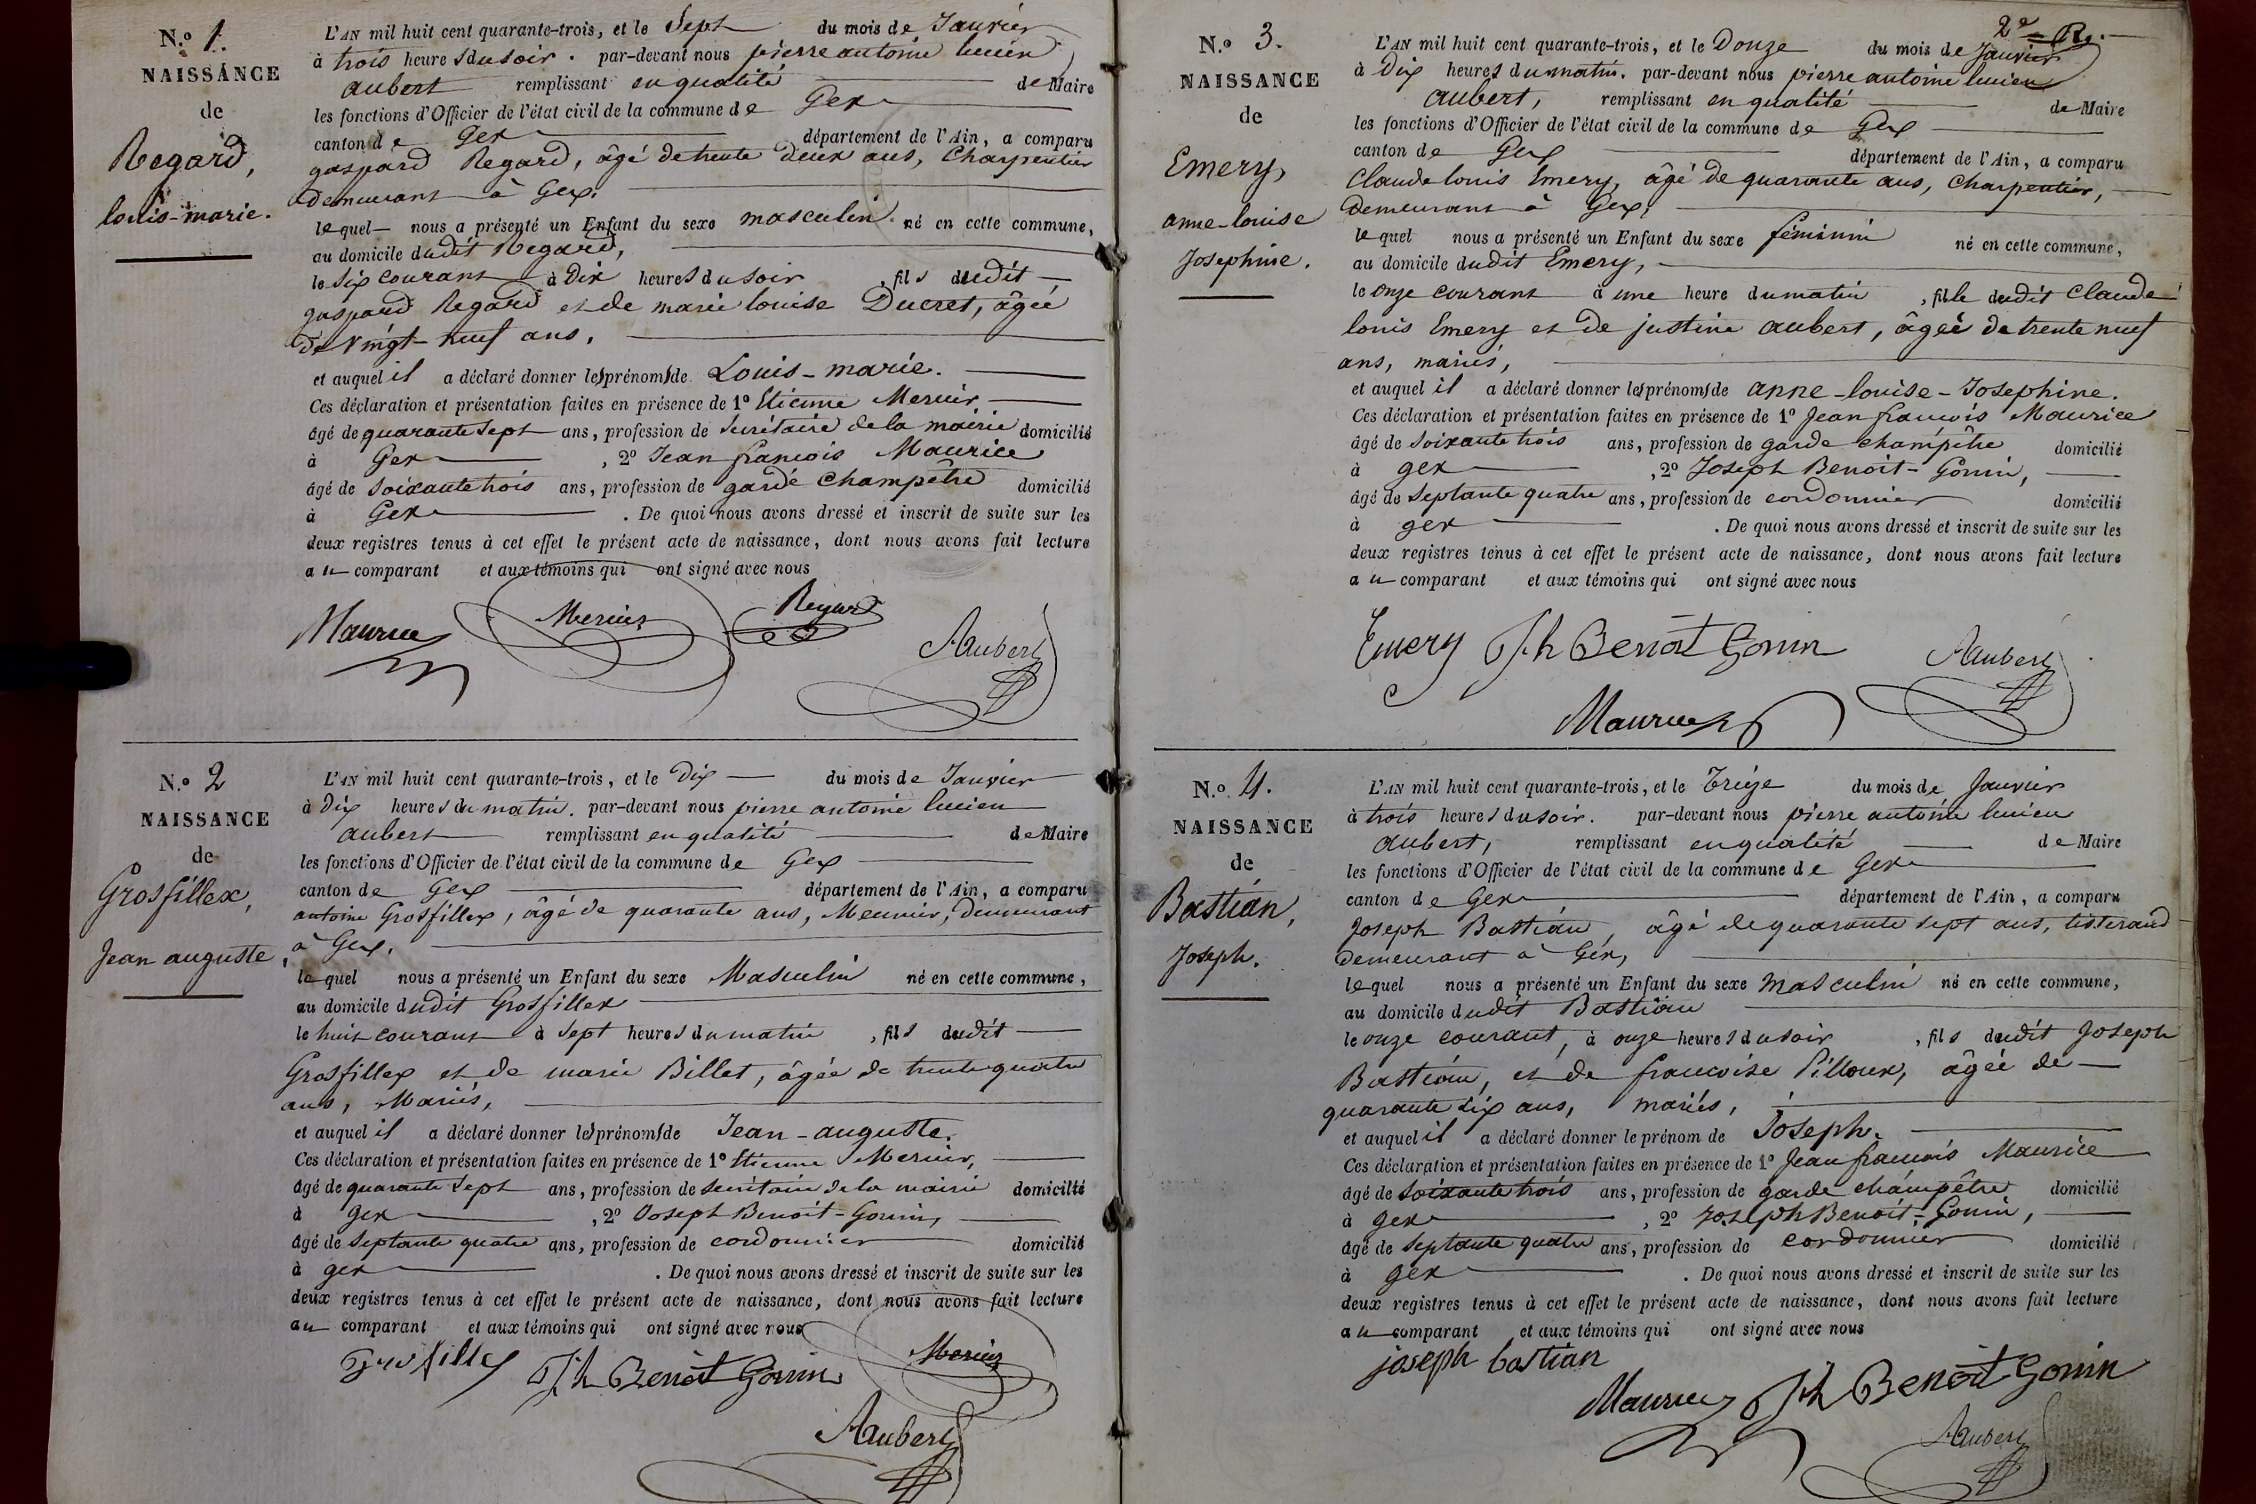 N.o 1.
NAISSANCE
de
Regard,
louis-marie.
L'AN mil huit cent quarante-trois, et le Sept du mois de Janvier
à trois heures du soir. par-devant nous pierre antoine lucien
aubert remplissant en qualité de Maire
les fonctions d'Officier de l'état civil de la commune de Gex
canton de Gex département de l'Ain, a comparu
gaspard Regard, âgé de trente deux ans, Charpentier
demeurant à Gex,
lequel nous a présenté un Enfant du sexe masculin né en cette commune,
au domicile dudit Regard,
le six courant à Dix heures du soir, fils dudit
gaspard Regard et de marie louise Ducret, âgée
de vingt-neuf ans,
et auquel il a déclaré donner les prénoms de Louis-marie.
Ces déclaration et présentation faites en présence de 1o Etienne Mercier
âgé de quarante sept ans, profession de Secrétaire de la mairie domicilié
à Gex, 2o Jean françois Maurice
âgé de soixante trois ans, profession de garde Champêtre domicilié
à Gex. De quoi nous avons dressé et inscrit de suite sur les
deux registres tenus à cet effet le présent acte de naissance, dont nous avons fait lecture
au comparant et aux témoins qui ont signé avec nous
Maurice Mercier Regard
Aubert
N.o 2
NAISSANCE
de
Grosfillex,
Jean auguste,
L'AN mil huit cent quarante-trois, et le Dix du mois de Janvier
à Dix heures du matin. par-devant nous pierre antoine lucien
aubert remplissant en qualité de Maire
les fonctions d'Officier de l'état civil de la commune de Gex
canton de Gex département de l'Ain, a comparu
antoine Grosfillex, âgé de quarante ans, Meunier, demeurant
à Gex.
lequel nous a présenté un Enfant du sexe Masculin né en cette commune,
au domicile dudit Grosfillex
le huit courant à sept heures du matin, fils dudit
Grosfillex et de marie Billet, âgée de trente quatre
ans, Mariés,
et auquel il a déclaré donner les prénoms de Jean-auguste.
Ces déclaration et présentation faites en présence de 1o Etienne Mercier,
âgé de quarante sept ans, profession de secrétaire de la mairie domicilié
à gex, 2o Joseph Benoit-Gonin,
âgé de septante quatre ans, profession de cordonnier domicilié
à gex. De quoi nous avons dressé et inscrit de suite sur les
deux registres tenus à cet effet le présent acte de naissance, dont nous avons fait lecture
au comparant et aux témoins qui ont signé avec nous
Grosfillex Jh Benoit Gonin Mercier
Aubert
2e
N.o 3.
NAISSANCE
de
Emery,
anne-louise
Josephine.
L'AN mil huit cent quarante-trois, et le Douze du mois de Janvier
à Dix heures du matin. par-devant nous pierre antoine lucien
aubert, remplissant en qualité de Maire
les fonctions d'Officier de l'état civil de la commune de Gex
canton de Gex département de l'Ain, a comparu
Claude louis Emery, âgé de quarante ans, Charpentier,
demeurant à Gex,
lequel nous a présenté un Enfant du sexe féminin né en cette commune,
au domicile dudit Emery,
le onze courant à une heure du matin, fille dudit Claude
louis Emery et de justine aubert, âgée de trente neuf
ans, mariés,
et auquel il a déclaré donner les prénoms de anne-louise-Josephine.
Ces déclaration et présentation faites en présence de 1o Jean françois Maurice
âgé de soixante trois ans, profession de garde champêtre domicilié
à gex, 2o Joseph Benoit-Gonin,
âgé de septante quatre ans, profession de cordonnier domicilié
à gex. De quoi nous avons dressé et inscrit de suite sur les
deux registres tenus à cet effet le présent acte de naissance, dont nous avons fait lecture
au comparant et aux témoins qui ont signé avec nous
Emery Jh Benoit Gonin Aubert
Maurice
N.o 4.
NAISSANCE
de
Bastian,
Joseph.
L'AN mil huit cent quarante-trois, et le Treize du mois de Janvier
à trois heures du soir. par-devant nous pierre antoine lucien
aubert, remplissant en qualité de Maire
les fonctions d'Officier de l'état civil de la commune de Gex
canton de Gex département de l'Ain, a comparu
Joseph Bastian, âgé de quarante sept ans, tisserand
demeurant à Gex,
lequel nous a présenté un Enfant du sexe masculin né en cette commune,
au domicile dudit Bastian
le onze courant, à onze heures du soir, fils dudit Joseph
Bastian, et de françoise Pilloux, âgée de
quarante six ans, mariés,
et auquel il a déclaré donner le prénom de Joseph.
Ces déclaration et présentation faites en présence de 1o Jean françois Maurice
âgé de soixante trois ans, profession de garde champêtre domicilié
à gex, 2o Joseph Benoit-Gonin,
âgé de septante quatre ans, profession de cordonnier domicilié
à gex. De quoi nous avons dressé et inscrit de suite sur les
deux registres tenus à cet effet le présent acte de naissance, dont nous avons fait lecture
au comparant et aux témoins qui ont signé avec nous
joseph bastian
Maurice Jh Benoit Gonin
Aubert